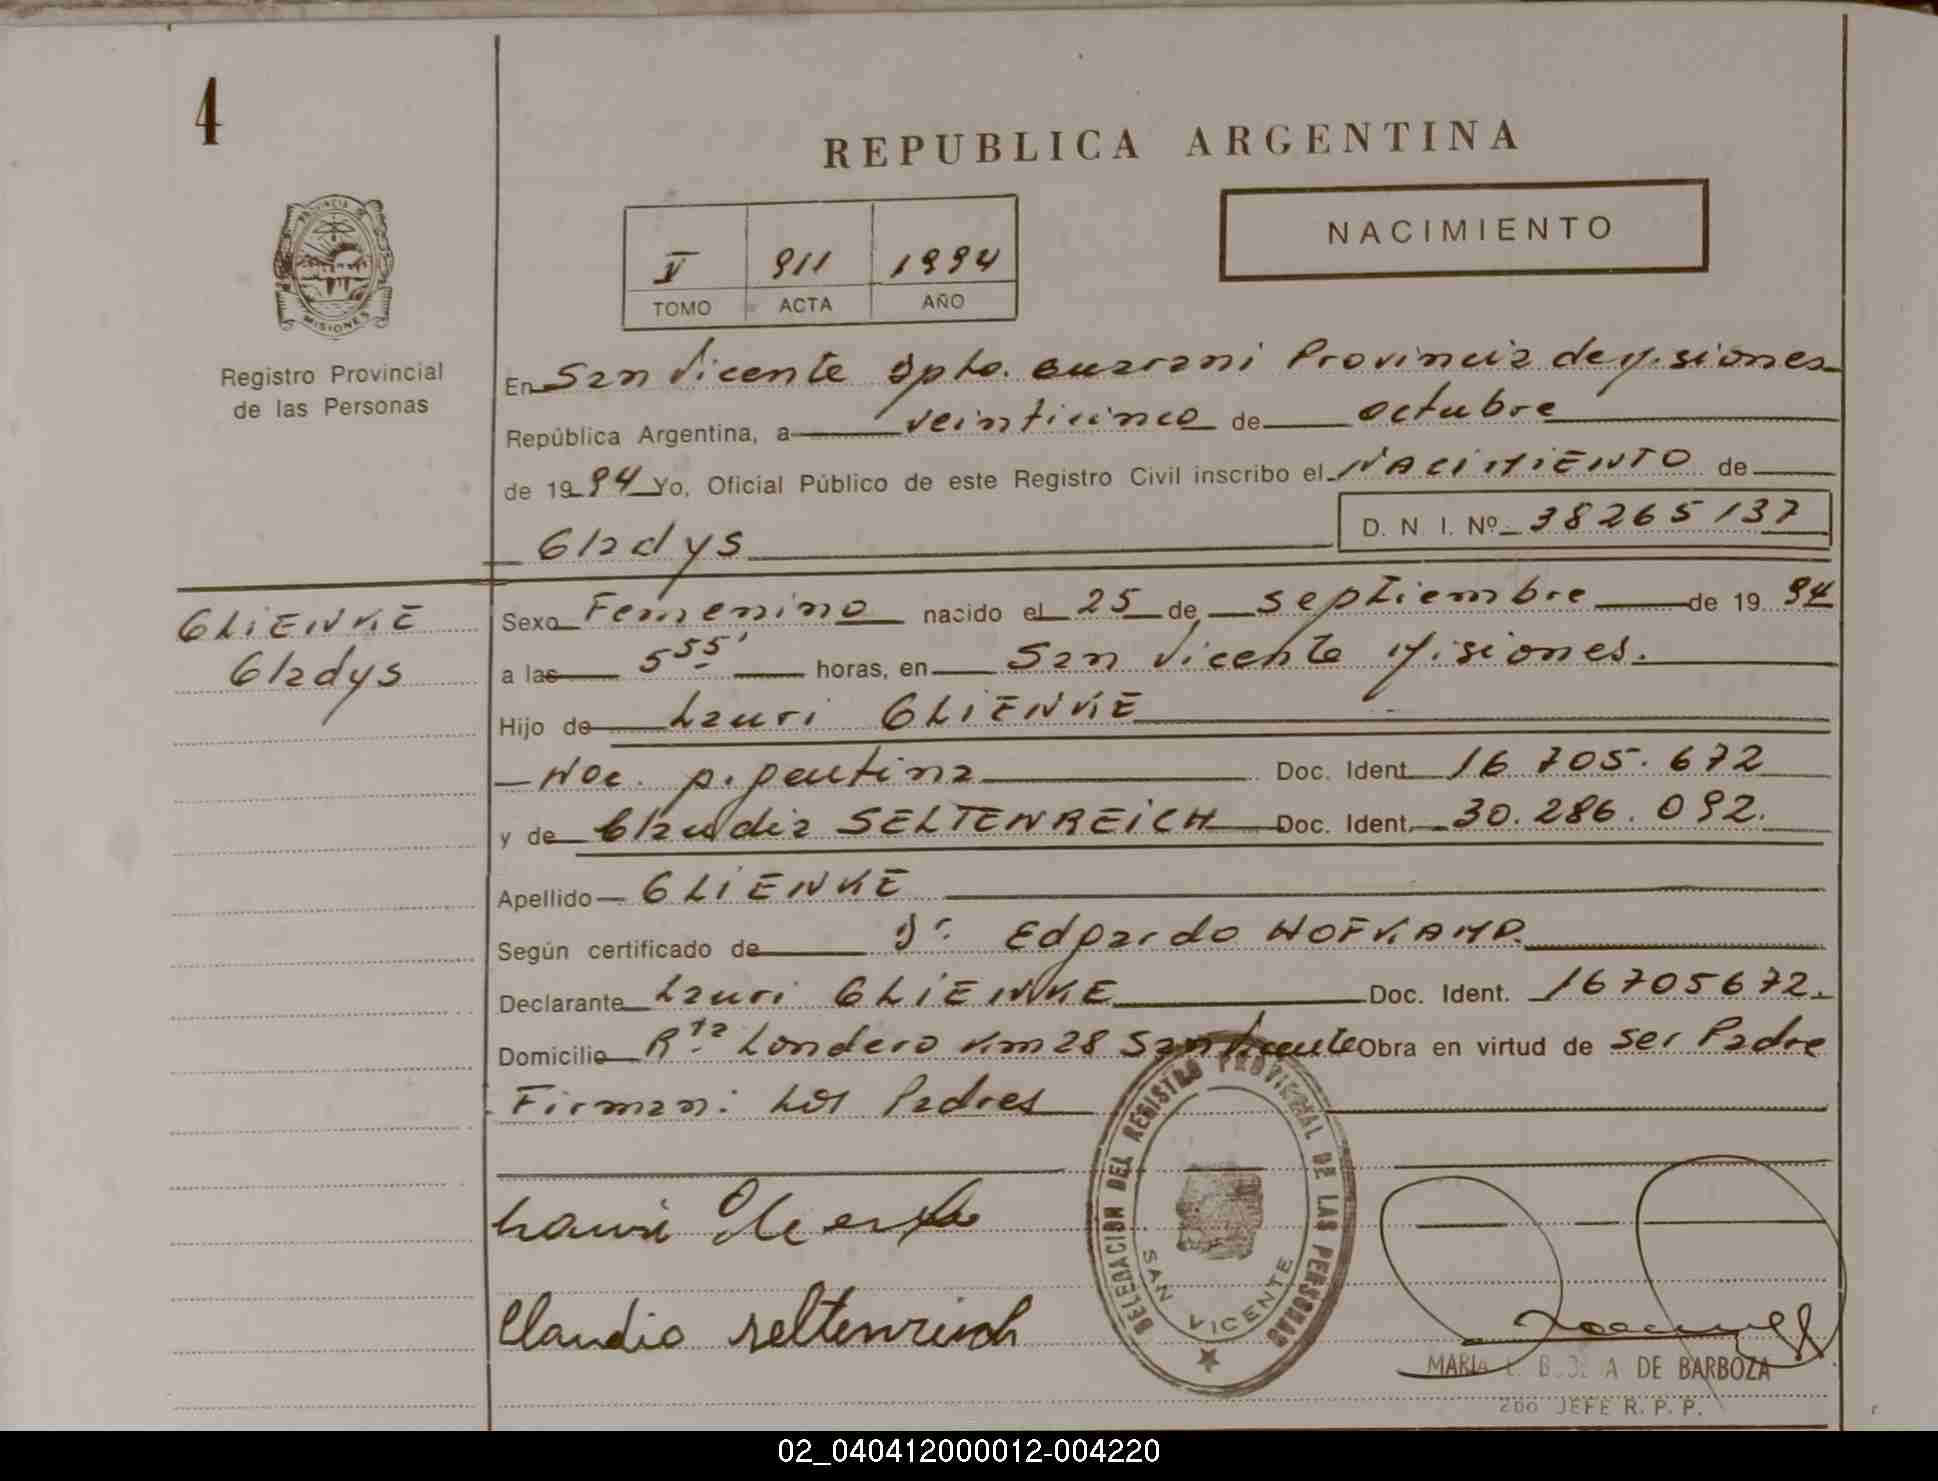 4
REPUBLICA ARGENTINA
PROVINCIA DE
MISIONES
Registro Provincial
de las Personas
V 911 1994
TOMO ACTA AÑO
NACIMIENTO
En San Vicente Dpto. Guarani Provincia de Misiones
República Argentina, a veinticinco de octubre
de 1994 Yo, Oficial Público de este Registro Civil inscribo el NACIMIENTO de
Gladys
D. N. I. Nº 38265137
GLIENKE
Gladys
Sexo Femenino nacido el 25 de septiembre de 1994
a las 5 55' horas, en San Vicente Misiones.
Hijo de Lauri GLIENKE
Nac. Argentina Doc. Ident. 16 705.672
y de Claudia SELTENREICH Doc. Ident. 30.286.092.
Apellido GLIENKE
Según certificado de Dr. Edgardo HOFKAMP.
Declarante Lauri GLIENKE Doc. Ident. 16705672.
Domicilio Rta Londero Km 28 San Vicente Obra en virtud de ser Padre
Firman: Los Padres
Claudia seltenreich
DELEGACION DEL REGISTRO PROVINCIAL DE LAS PERSONAS
SAN VICENTE
MARIA DE BARBOZA
2do JEFE R. P. P.
02_040412000012-004220